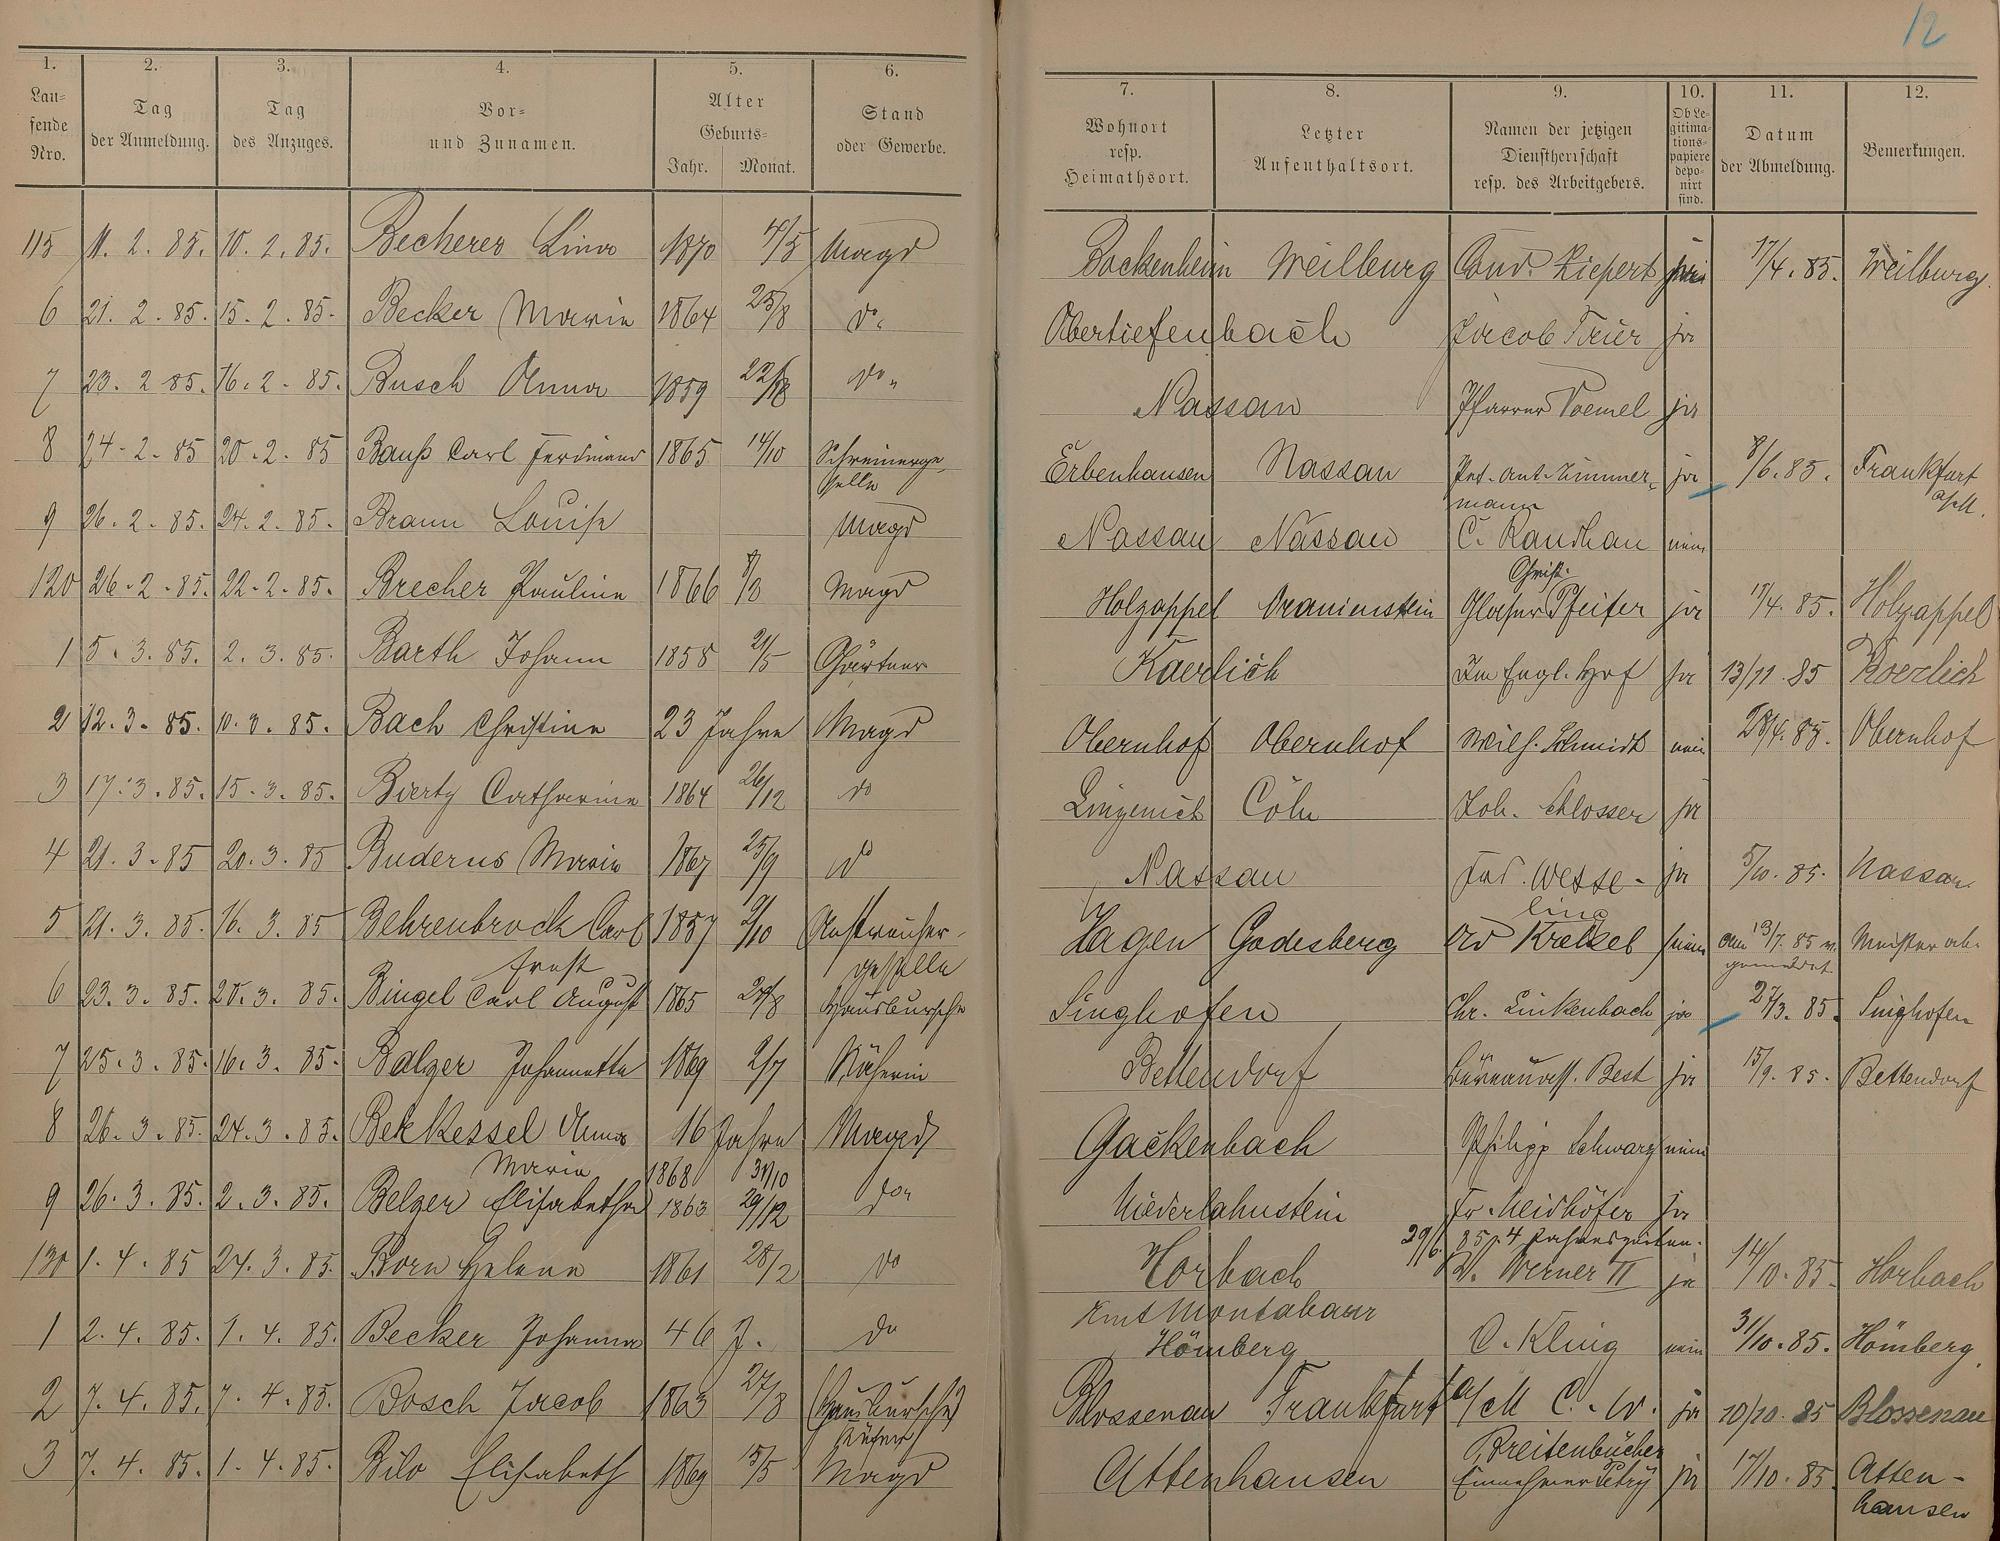 12
1. 2. 3. 4. 5. 6. 7. 8. 9. 10. 11. 12.
Lau=
fende
Nro.
Tag
der Anmeldung.
Tag
des Anzuges.
Vor=
und Zunamen.
Alter
Geburts=
Jahr. Monat.
Stand
oder Gewerbe.
Wohnort
resp.
Heimathsort.
Letzter
Aufenthaltsort.
Namen der jetzigen
Dienstherrschaft
resp. des Arbeitgebers.
Ob Le=
gitima=
tions=
papiere
depo=
nirt
sind.
Datum
der Abmeldung.
Bemerkungen.
115 11. 2. 85. 10. 2. 85. Becherer Lina 1870 4/5 Magd Bockenheim Weilburg Cond. Kiepert 17/4. 85. Weilburg.
6 21. 2. 85. 15. 2. 85. Becker Maria 1864 25/8 do. Obertiefenbach Jacob Trier ja
7 23. 2 85. 16. 2. 85. Busch Anna 1859 Do. Nassau Pfarrer Voemel ja
8 24. 2. 85 20. 2. 85 Bauß Carl Ferdinand 1865 14/10 Schreinerge=
selle Erbenhausen Nassau Pet. Ant. Zimmer=
mann ja 8/6. 85. Frankfurt
a/M.
9 26. 2. 85. 24. 2. 85. Braun Louise Magd Nassau Nassau C. Raudhau nein
120 26. 2. 85. 22. 2. 85. Brecher Pauline 1866 Magd Holzappel Oranienstein Christ.
Glaser Pfeifer ja 85. Holzappel
1 5. 3. 85. 2. 3. 85. Barth Johann 1858 21/5 Gärtner Kaerlich Im Engl. Hof ja 13/11. 85 Kaerlich
2 12. 3. 85. 10. 3. 85. Bach Christine 23 Jahre Magd Obernhof Obernhof Wilh. Schmidt nein 28/4. 85. Obernhof
3 17. 3. 85. 15. 3. 85. Catharina 1864 26/12 do Cöln Joh. Schlosser ja
4 21. 3. 85 20. 3. 85 Buderus Maria 1867 25/9 do Nassau Ferd. Wesse=
ling ja 5/10. 85. Nassau.
5 21. 3. 85. 16. 3. 85 Behrenbrock Carl 1857 2/10 Anstreicher=
geselle Hagen Godesberg Ad Kreksel nein 13/7. 85 Meister
6 23. 3. 85. 20. 3. 85. Ernst
Bingel Carl August 1865 24/8 Hausbursche Singhofen Chr. Linkenbach ja 27/3. 85. Singhofen
7 25. 3. 85. 16. 3. 85. Balzer Johannetta 1869 2/7 Näherin Bettendorf Best ja 15/9. 85. Bettendorf
8 26. 3. 85. 24. 3. 85. Bekkessel Anna 16 Jahre Magd Gackenbach Philipp Schwarz nein
Maria 1868 31/10
9 26. 3. 85. 2. 3. 85. Belzer Elisabetha 1863 29/12 do. Niederlahnstein Fr. Neidhöfer ja
29/6. 85 z. 4 Jahreszeiten.
130 1. 4. 85 24. 3. 85. Born Helena 1861 28/2 do Horbach
Amt Montabaur W. Werner II ja 14/10. 85. Horbach
1 2. 4. 85. 1. 4. 85. Becker Johanna 46 J. do Hömberg C. Kling nein 31/10. 85. Hömberg.
2 7. 4. 85. 7. 4. 85. Bosch Jacob 1863 27/8 Hausbursche
Küfer Blossenau Frankfurt a/M C. W.
Breitenbücher ja 10/10. 85 Blossenau
3 7. 4. 85. 1. 4. 85. Bilo Elisabeth 1869 15/5 Magd Attenhausen Einnehmer Petry ja 17/10. 85. Atten=
hausen